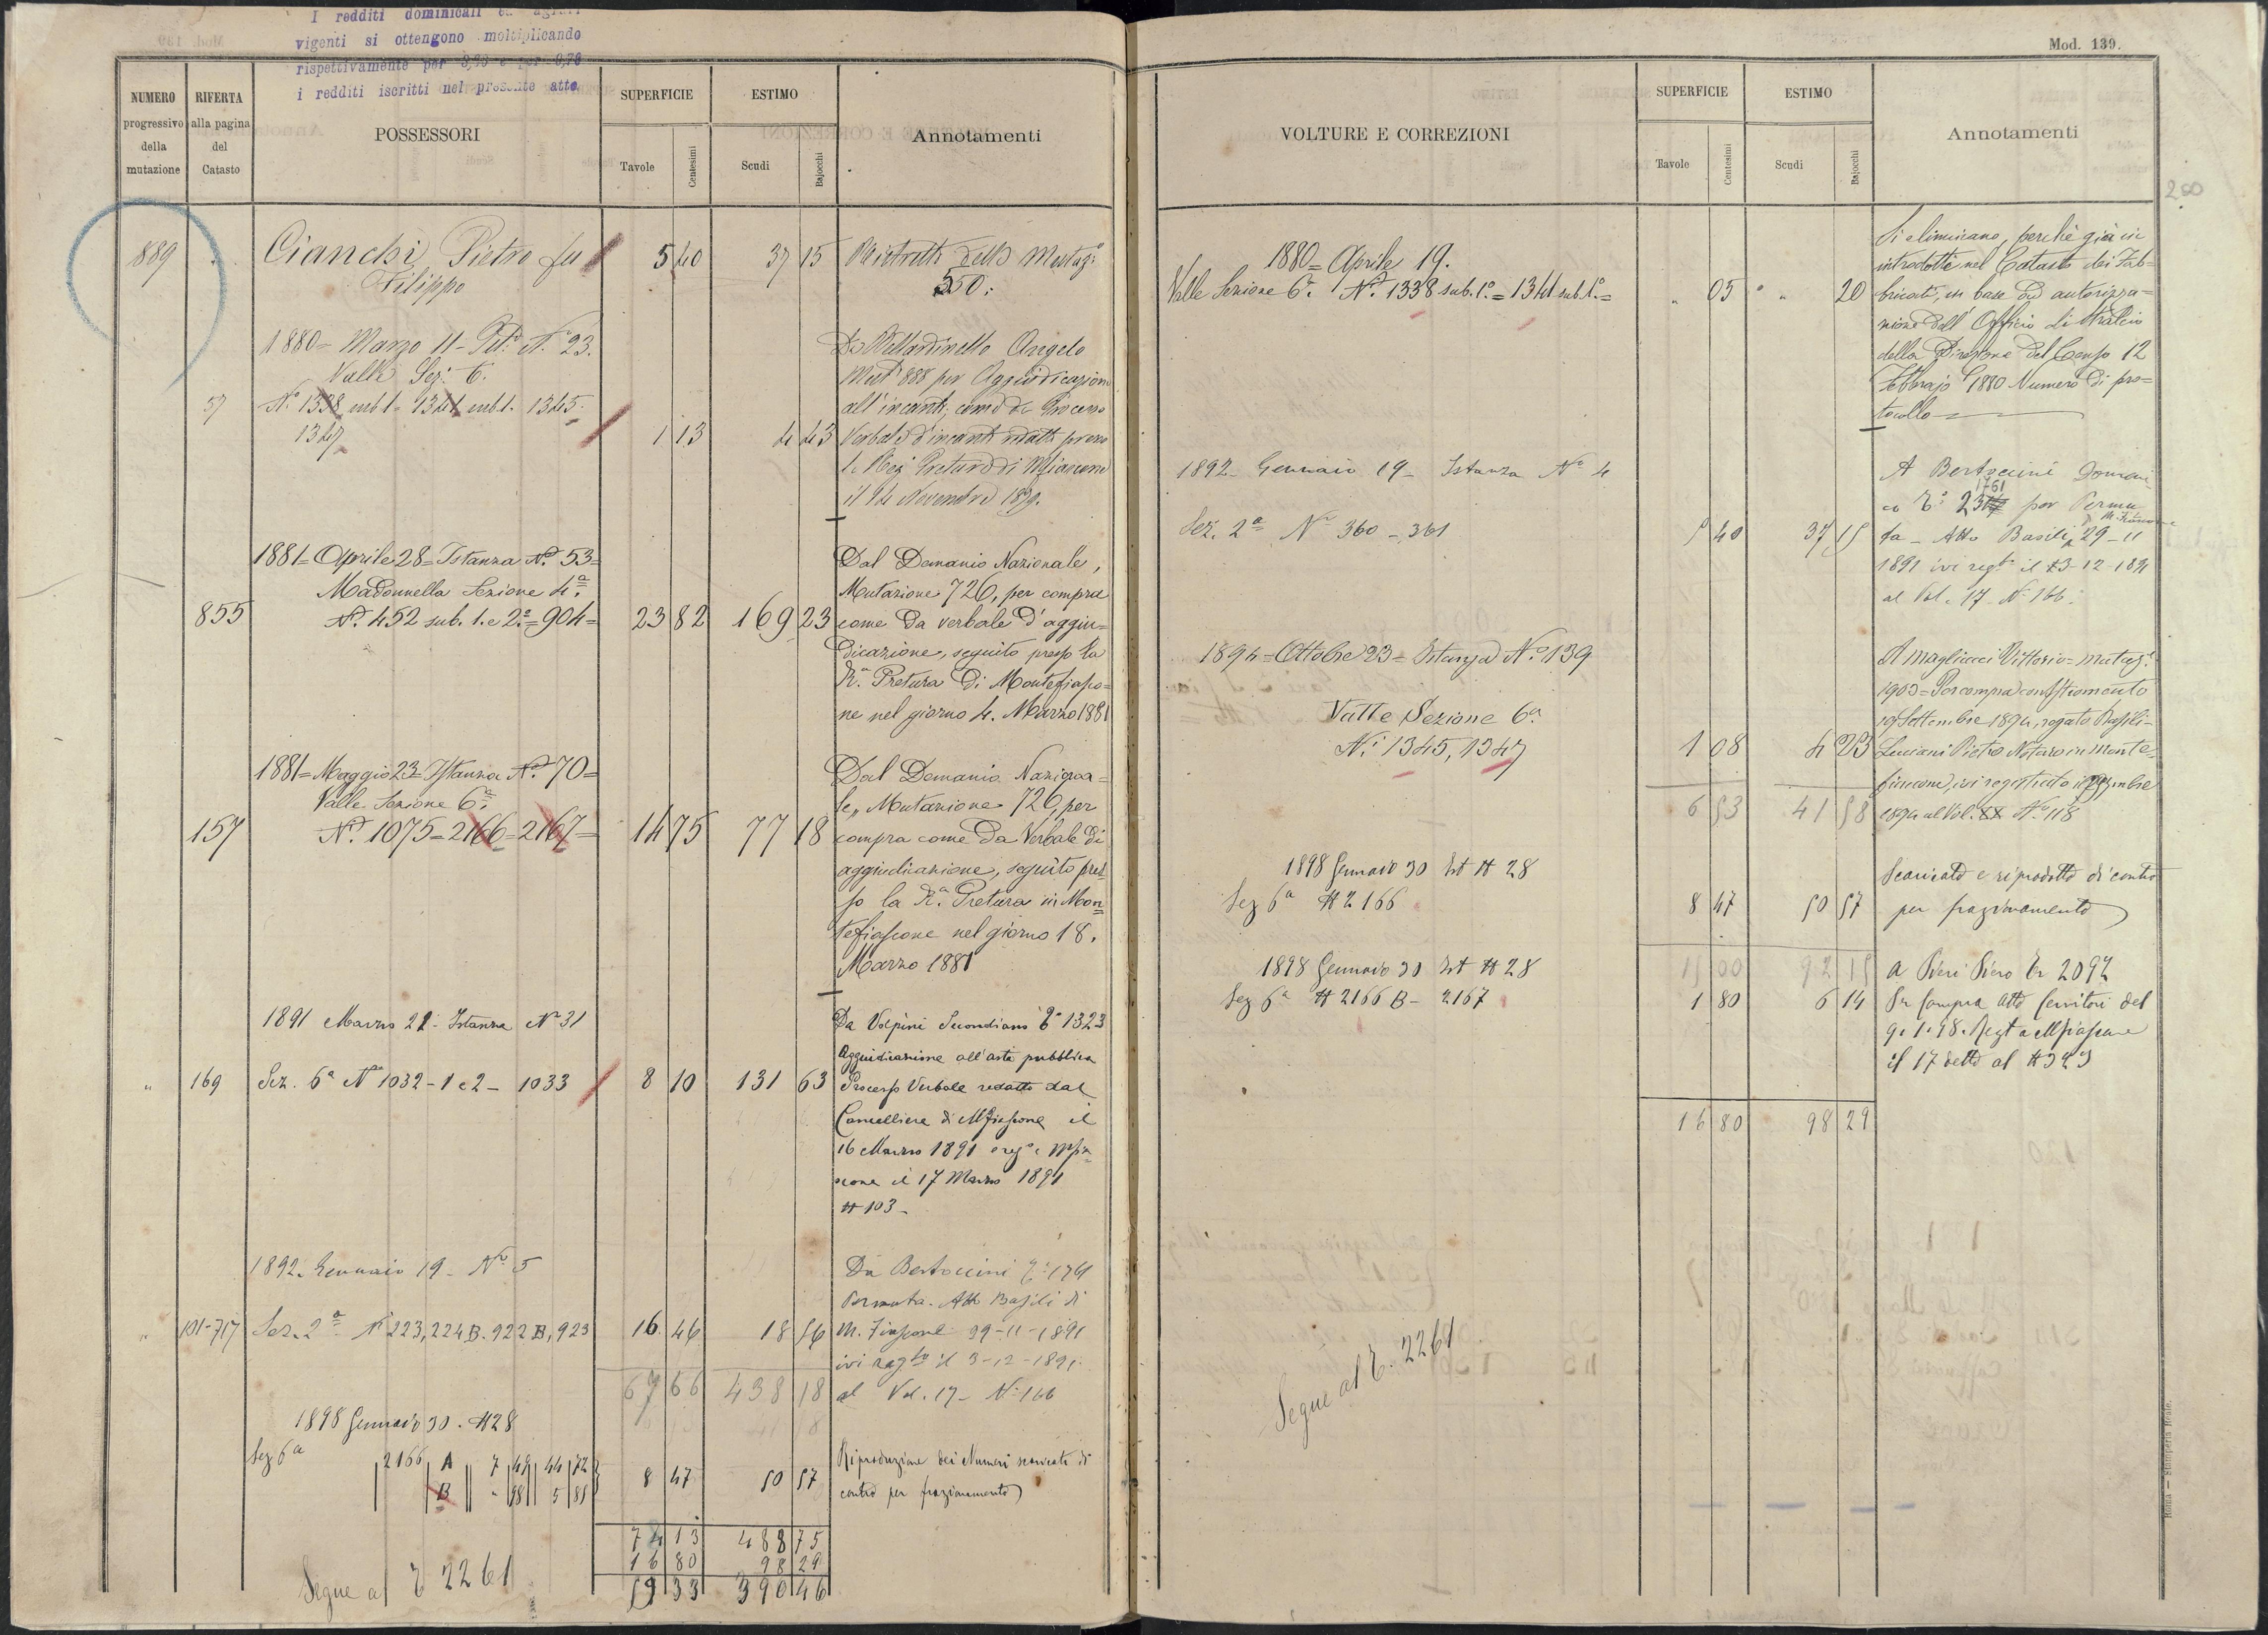 I redditi dominicali ed agrari
vigenti si ottengono moltiplicando
rispettivamente per
i redditi iscritti nel presente atto
NUMERO
progressivo
della
mutazione
RIFERTA
alla pagina
del
Catasto
POSSESSORI
SUPERFICIE
Tavole
Centesimi
ESTIMO
Scudi
Bajocchi
Annotamenti
889 Cianchi Pietro fu 5 40 37 15 Ristretto della Mutaz:
Filippo 550:
1880= Marzo 11- N. 23. Da Bellardinelli Angelo
Valle Sez: 6. Mut 888 per Aggiudicazione
57 N. 1338 sub 1. 1341 sub 1. 1345. all'incanti, come da Processo
1347 1 13 4 43 Verbale d'incanti redatto presso
la Pretura di Mfiascone
il 24 Novembre 1879.
1881= Aprile 28= Istanza N. 53= Dal Demanio Nazionale,
Madonnella Sezione 4.a Mutazione 726, per compra
855 N. 452 sub. 1. e 2.=904= 23 82 169 23 come da verbale d'aggiu=
dicazione, seguito presso la
R.a Pretura di Montefiasco=
ne nel giorno 4. Marzo 1881
1881= Maggio 23= Istanza N. 70= Dal Demanio Naziona=
Valle Sezione 6.a le, Mutazione 726, per
157 N. 1075=2166=2167= 14 75 77 18 compra come da Verbale di
aggiudicazione, seguito pres=
so la R.a Pretura in Mon=
tefiascone nel giorno 18.
Marzo 1881
1891 Marzo 21- Istanza N 31 Da Volpini Secondiano 1323
Aggiudicazione all'asta pubblica
" 169 Sez. 6a N 1032-1 e 2- 1033 8 10 131 63 Processo Verbale redatto dal
Cancelliere di Mfiascone il
16 Marzo 1891
scone il 17 Marzo 1891
# 103-
1892. Gennaio 19- N. 5 Da Bertoccini 1761
Permuta. Atto Basili di
" 101-717 Sez. 2a N 223, 224 B. 922 B, 923 16 46 18 56 M. Fiascone 29-11-1891
ivi regto il 3-12-1891.
67 66 438 18 al Vol. 17- N. 166
1898 Gennaio 30. #28
Sez 6a 2166 A 7 49 44 72 Riproduzione dei Numeri scaricati di
B " 98 5 85 8 47 50 57 contro per frazionamento
74 13 488 75
16 80 98 29
Segue al 2261 57 33 390 46
Mod. 139.
VOLTURE E CORREZIONI
SUPERFICIE
Tavole
Centesimi
ESTIMO
Scudi
Bajocchi
Annotamenti
250
Si eliminano, perchè già in
1880= Aprile 19. introdotti nel Catasto dei Fab=
Valle Sezione 6.a N. 1338 sub. 1.=1341 sub. 1.= " 05 " 20 bricati, in base ad autorizza=
zione dell'Officio di Stralcio
della Direzione del Censo 12
Febbrajo 1880 Numero di pro=
tocollo
1892- Gennaio 19- Istanza N. 4 A Bertoccini Domeni-
co 1761 per Permu
Sez. 2a N 360-361 5 40 37 15 ta- Atto Basili 29-11
1891 ivi regto il 3-12-1891
al Vol. 17- N. 166.
1894=Ottobre 23= Istanza N. 139 A Magliacci Vittorio= mutaz.
1903= Per compra con Istromento
Valle Sezione 6a Settembre 1894, rogato Basili-
N. 1345, 1347 1 08 4 23 Luciani Pietro Notaro in Monte=
fiascone, ivi registrato il
6 53 41 58 1894 al Vol. N. 118
1898 Gennaio 30 Ist # 28 Scaricato e riprodotto di contro
Sez 6a # 2166 8 47 50 57 per frazionamento
15 00 92 15
1898 Gennaio 30 Ist # 28 a Pieri Piero 2092
Sez 6a # 2166 B- 2167 1 80 6 14 Per compra atto Servitori del
9.1.98. Regt a Mfiascone
il 17 detto al #323
16 80 98 29
Segue al 2261
Roma — Stamperia Reale.